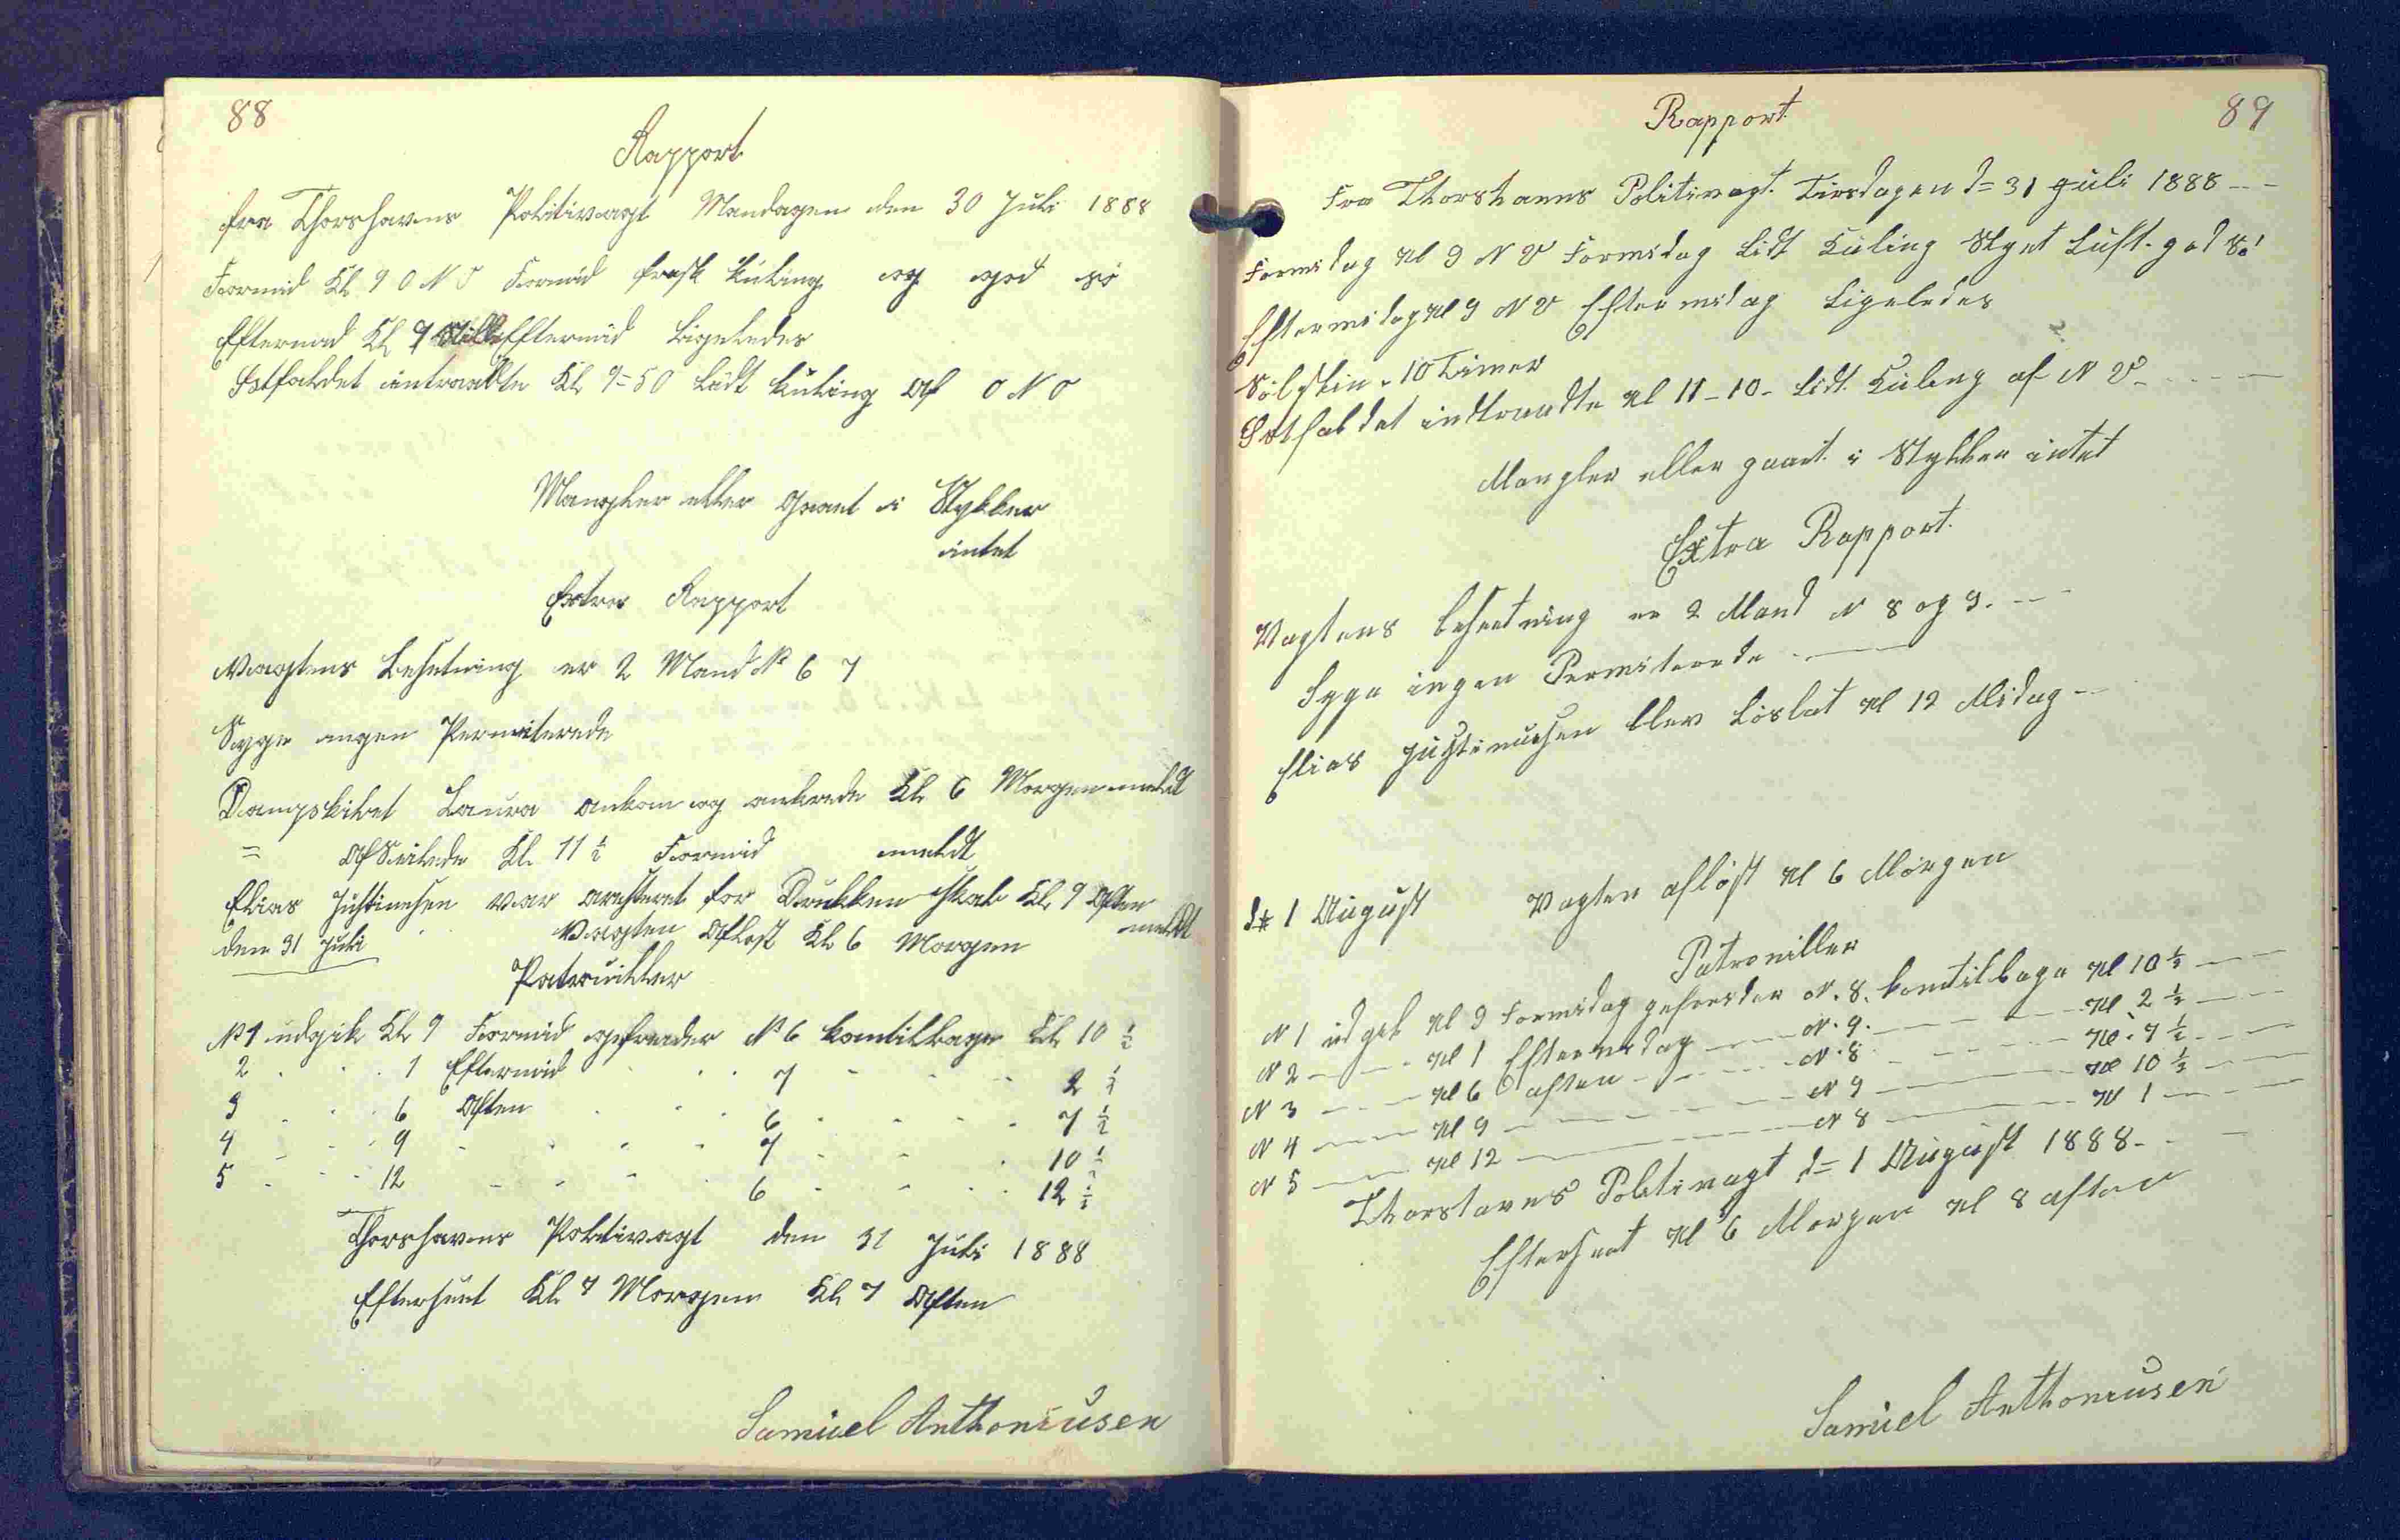 88
Rapport
fra Thorshavns Politivagt Mandagen den 30 Juli 1888
Formid Kl 9 O N O Formid frisk Kuling og god sö
Eftermid Kl 9 Stille Eftermid Ligeledes
Østfaldet intraadte Kl 9=50 Lidt Kuling Af O N O
Mangler eller Gaaet i Stykker
intet
Extra Rapport
Vagtens Besetning er 2 Mand No 6 7
Syge ingen Permiterede
Dampskibet Laura ankom og ankrede Kl 6 Morgen meldt
= Afseilede Kl. 11 1/2 Formid meldt
Elias Justinesen var aresteret for Drukkenskab Kl 9 Aften
meldt
den 31 Juli Vagten Aflöst Kl 6 Morgen
Patruiller
No 1 udgik Kl 9 Formid geforder No 6 komtilbage Kl 10 1/2
2 . . . 1 Eftermid . . . 7 . . . 2 1/2
3 . . . 6 Aften . . . 6 . . . 7 1/2
4 . . . 9 . . . 7 . . . 10 1/2
5 . . . 12 . . . 6 . . . 12 1/2
Thorshavns Politivagt den 31 Juli 1888
Efterseet Kl 7 Morgen Kl 7 Aften
Samuel Anthoniusen
Rapport 89
Fra Thorshavns Politivagt. Tirsdagen d= 31 Juli 1888
Formidag Kl 9 N V Formidag Lidt Kuling Skyet Luft. god Sö
Eftermidag Kl 9 N V Eftermidag Ligeledes
Solskin. 10 Timer
Østfaldet indtraadte Kl 11-10- Lidt Kuling af N V
Mangler eller gaaet i Stykker intet
Extra Rapport.
Vagtens besætning er 2 Mand N 8 og 9.
Syge ingen Permiterede
Elias Justinusen blev Löslat Kl 12 Midag
d= 1 August Vagten aflöst Kl 6 Morgen
Patroniller
N 1 udgik Kl 9 Formidag geforder N. 8. komtilbage Kl 10 1/2
N 2 Kl 1 Eftermidag N. 9. Kl 2 1/2
N 3 Kl 6 aften N. 8 Kl. 7 1/2
N 4 Kl 9 N 9 Kl 10 1/2
N 5 Kl 12 N 8 Kl 1
Thorshavns Politivagt d= 1 August 1888
Efterseet Kl 6 Morgen Kl 8 aften
Samuel Anthoniusen